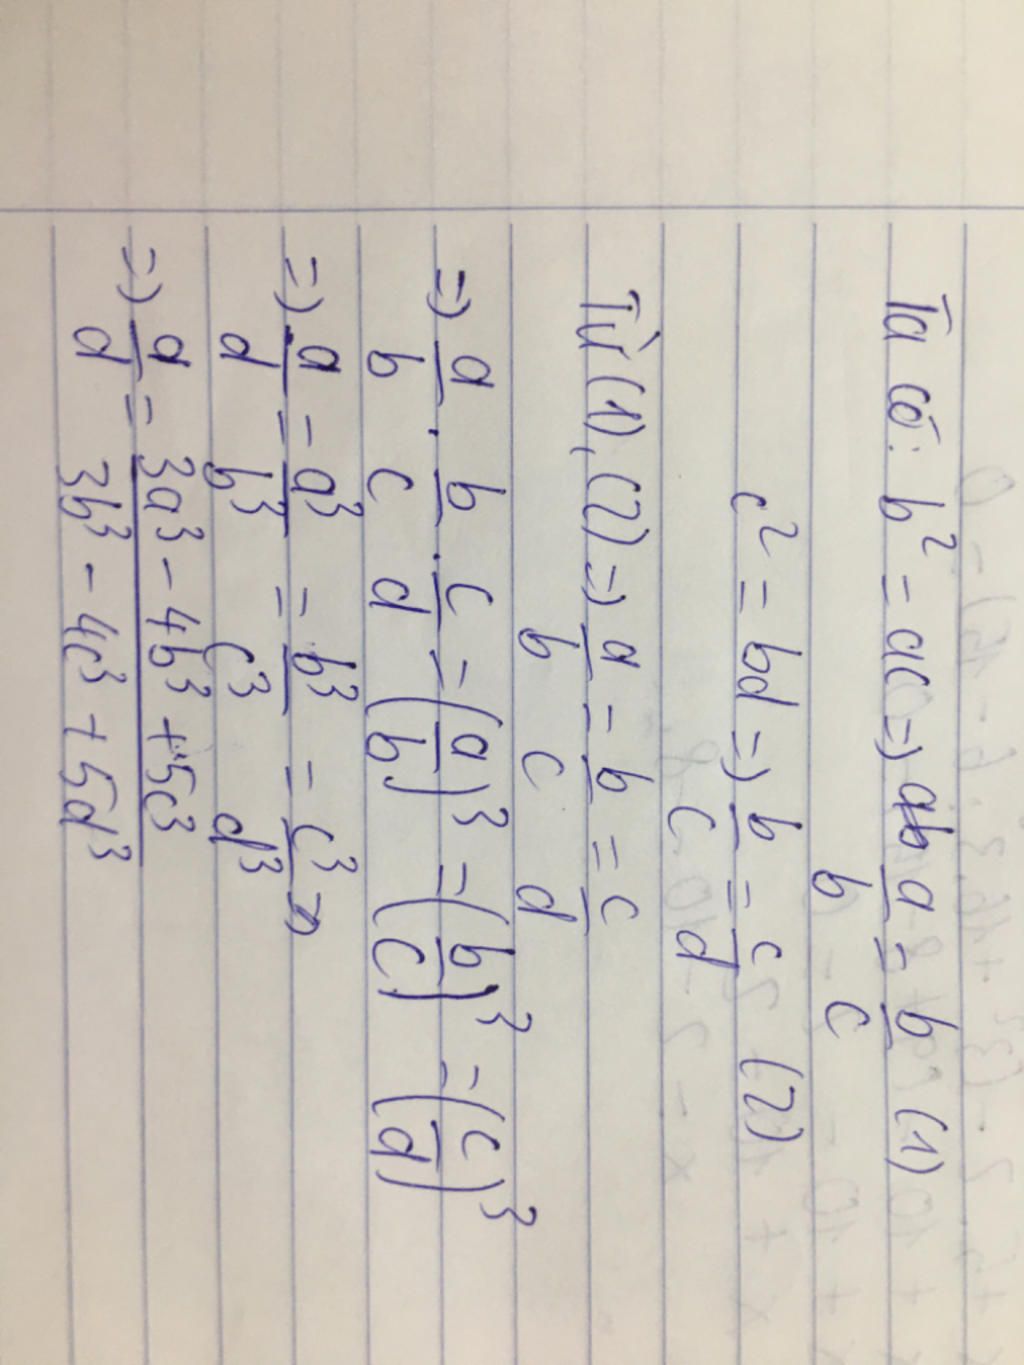 Ta có: b² = ac => a/b = b/c (1)
c² = bd => b/c = c/d (2)
Từ (1), (2) => a/b = b/c = c/d
=> a/b . b/c . c/d = (a/b)³ = (b/c)³ = (c/d)³
=> a/d = a³/b³ = b³/c³ = c³/d³
=> a/d = (3a³ - 4b³ + 5c³)/(3b³ - 4c³ + 5d³)